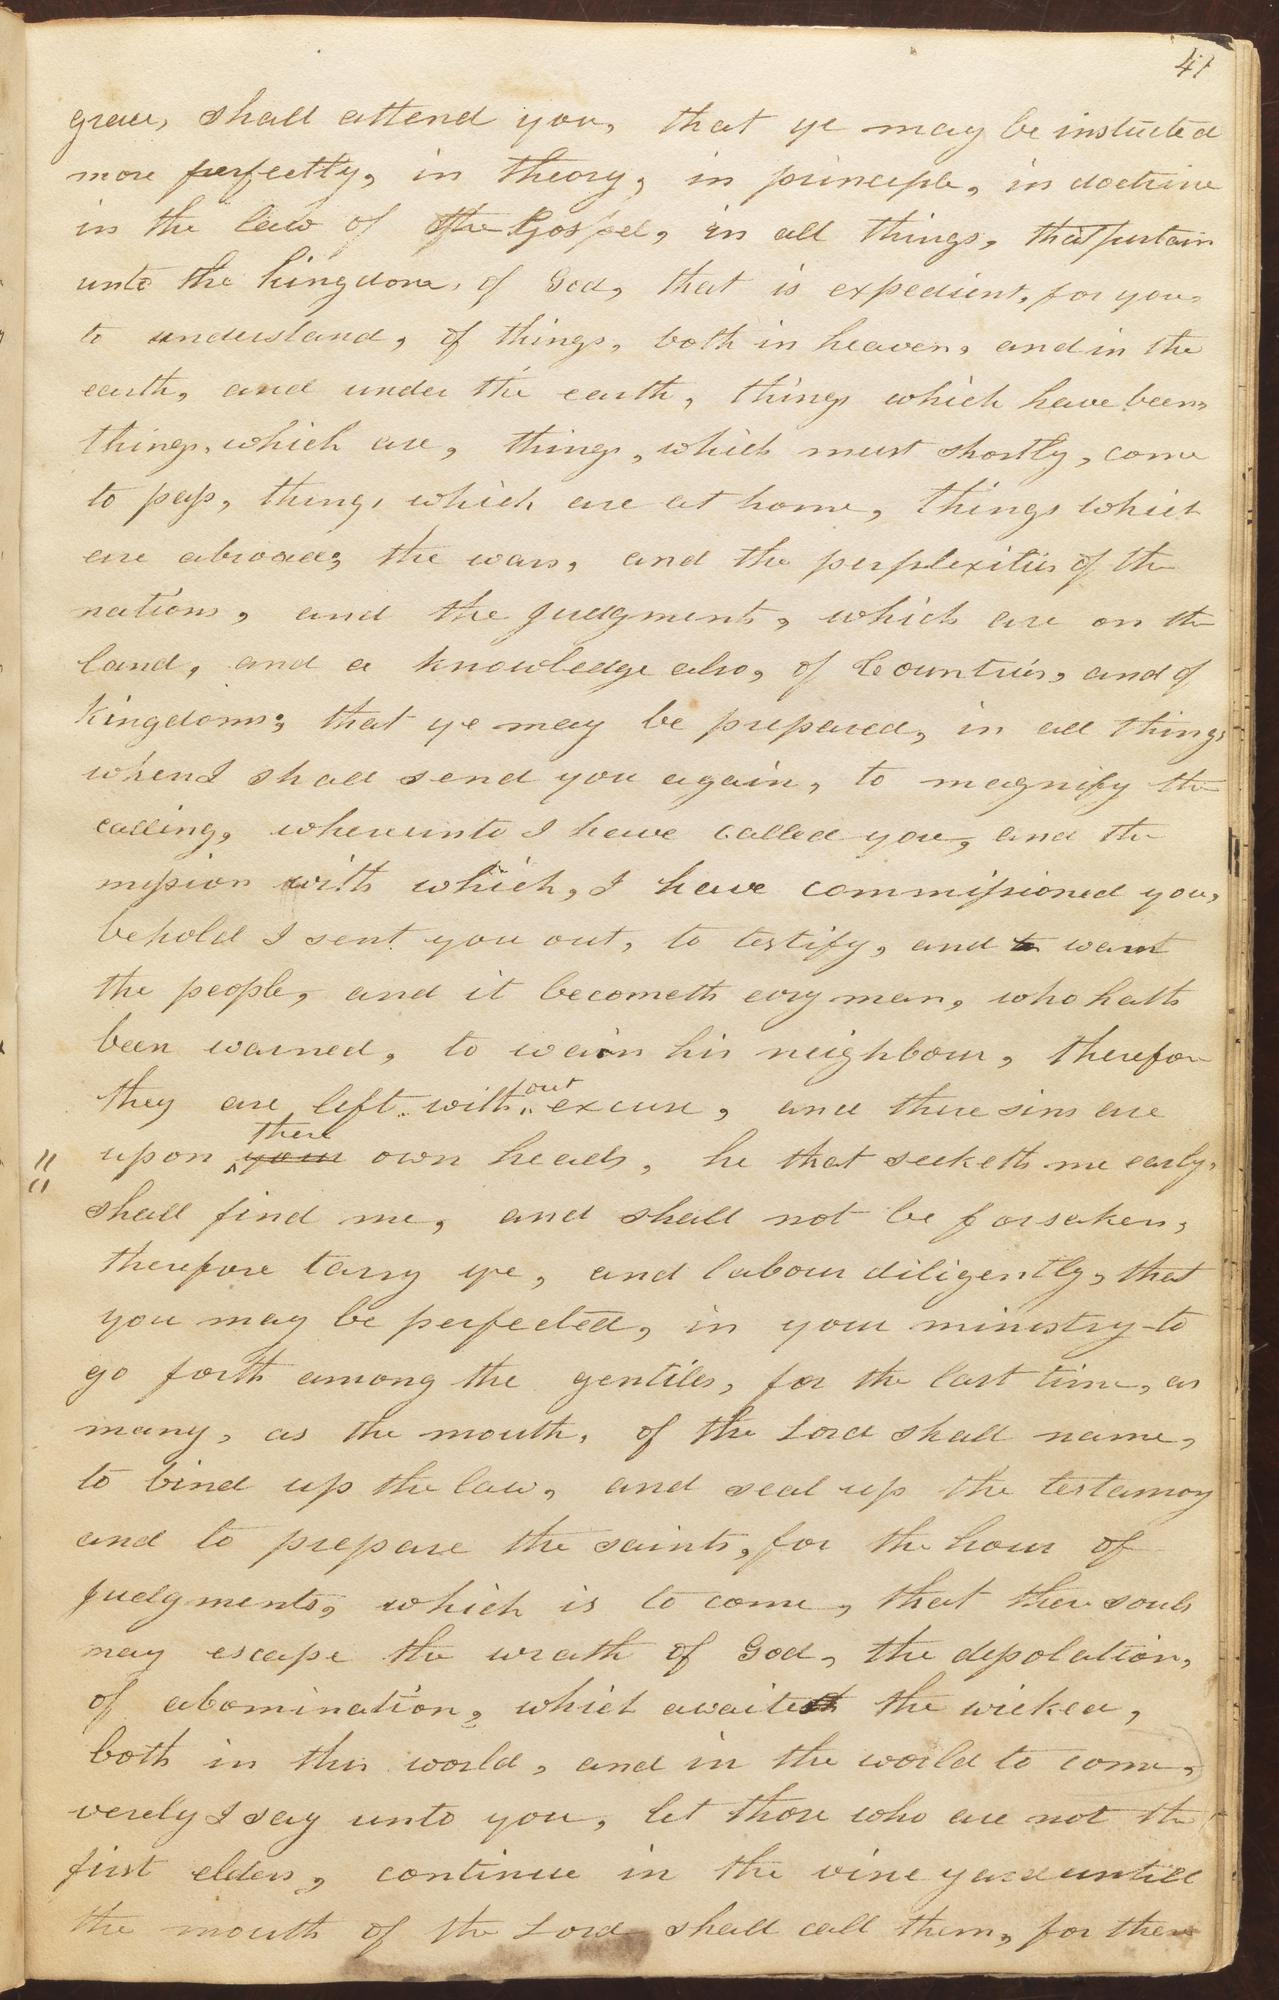 41
grace, shall attend you, that ye may be instucted
more perfectly, in theory, in principle, in doctrine
in the law of the Gospel, in all things, that pertain
unto the kingdom, of God, that is expedient, for you,
to understand, of things, both in heaven, and in the
earth, and under the earth, things which have been,
things, which are, things, which must shortly, come
to pass, things which are at home, things which
are abroad, the wars, and the perplexities of the
nations, and the judgments, which are on the
land, and a knowledge also, of Countries, and of
Kingdoms, that ye may be prepared, in all things
when I shall send you again, to magnify the
calling, whereunto I have called you, and the
mission with which, I have commissioned you,
behold I sent you out, to testify, and to warn
the people, and it becometh evry man, who hath
been warned, to warn his neighbour, therefore
they are left without excuse, and there sins are
upon your there own heads, he that seeketh me early,
shall find me, and shall not be forsaken,
therefore tarry ye, and labour diligently, that
you may be perfected, in your ministry to
go forth among the gentiles, for the last time, as
many, as the mouth, of the Lord shall name,
to bind up the law, and seal up the testamony
and to prepare the saints, for the hour of
judgments, which is to come, that their souls
may escape the wrath of God, the desolation,
of abomination, which awaiteth the wicked,
both in this world, and in the world to come,
verely I say unto you, let those who are not the
first elders, continue in the vine yard untill
the mouth of the Lord shall call them, for there